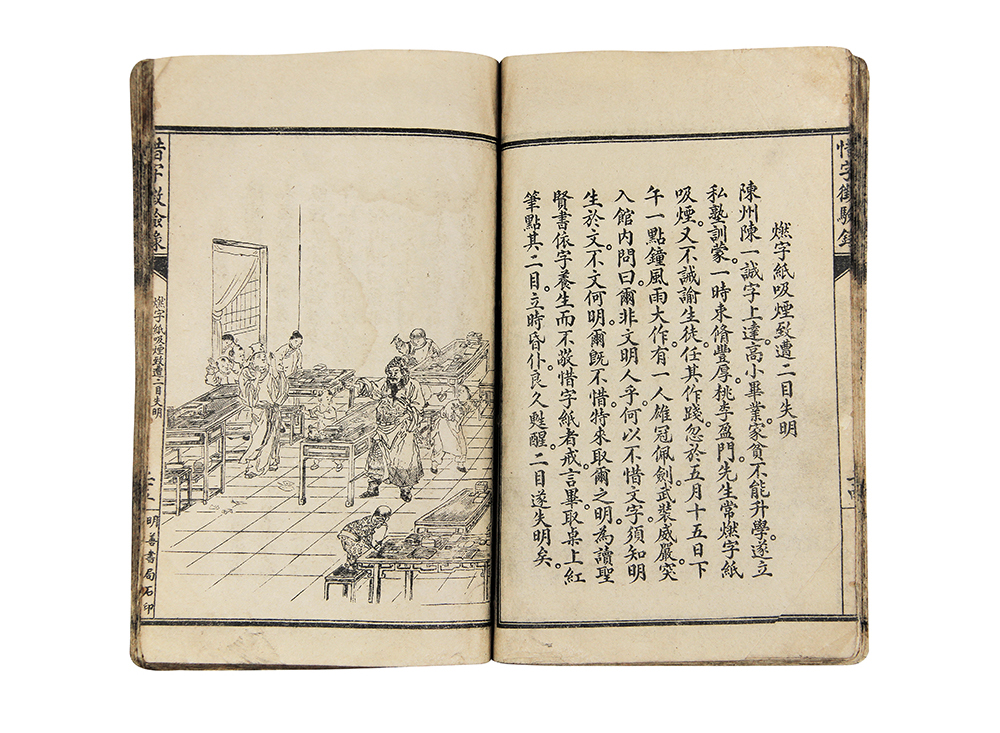 惜字徵驗錄
燃字紙吸煙致遭二目失明
陳州陳一誠字上達。高小畢業。家貧不能升學。遂立
私塾訓蒙。一時束脩豐厚。桃李盈門。先生常燃字紙
吸煙。又不誡諭生徒。任其作踐。忽於五月十五日下
午一點鐘。風雨大作。有一人雄冠佩劍。武裝威嚴。突
入館內。問曰。爾非文明人乎。何以不惜文字。須知明
生於文。不文何明。爾既不惜。特來取爾之明。為讀聖
賢書依字養生。而不敬惜字紙者戒。言畢。取桌上紅
筆點其二目。立時昏仆。良久甦醒。二目遂失明矣。
惜字徵驗錄
燃字紙吸煙致遭二目失明
明善書局石印